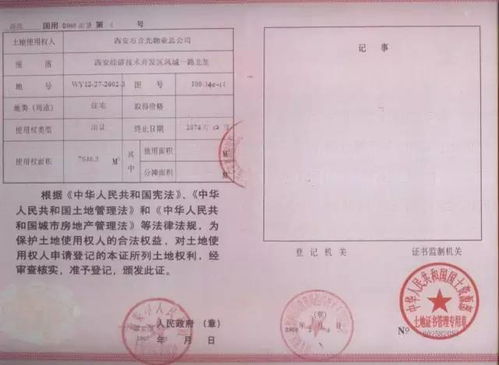 国用 第 号
土地使用权人
座落 西安经济技术开发区凤城一路北侧
地号 WY12-27-2002-3 图号
地类(用途) 住宅 取得价格
使用权类型 出让 终止日期
使用权面积 M² 其中 使用面积 M²
分摊面积 M²
根据《中华人民共和国宪法》、《中华
人民共和国土地管理法》和《中华人民共
和国城市房地产管理法》等法律法规,为
保护土地使用权人的合法权益,对土地使
用权人申请登记的本证所列土地权利,经
审查核实,准予登记,颁发此证。
人民政府(章)
年 月 日
记事
登记机关 证书监制机关
中华人民共和国国土资源部
土地证书管理专用章
№